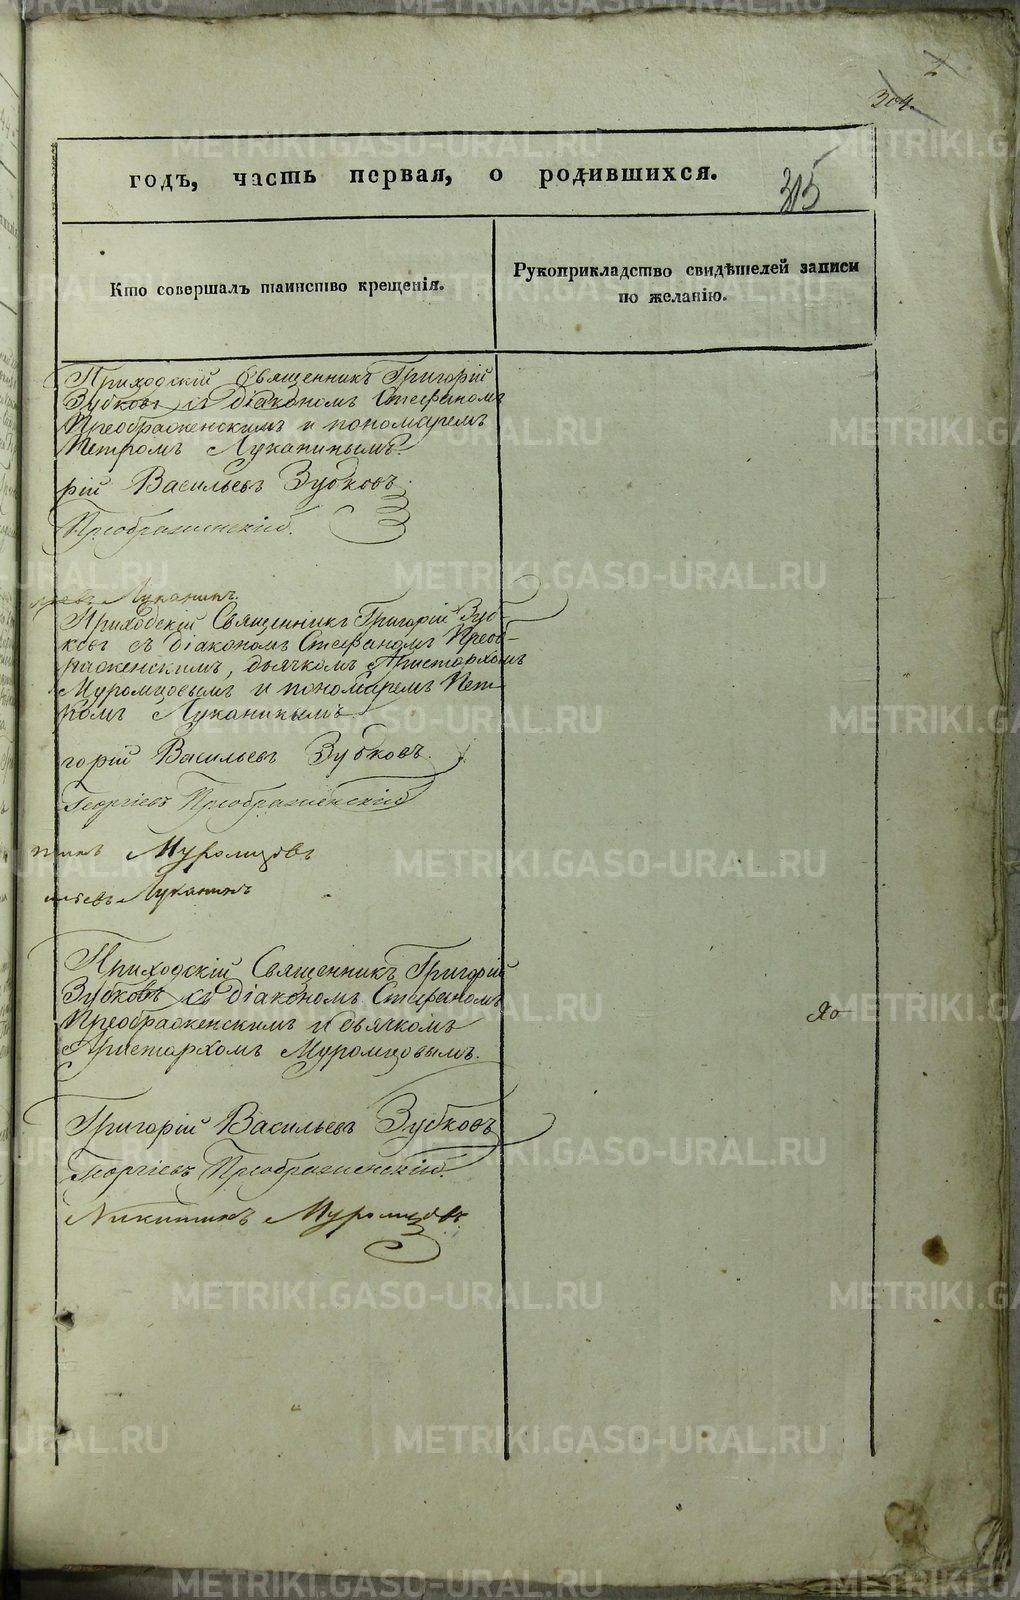 304.
годъ, часть первая, о родившихся.
315
Кто совершалъ таинство крещенія.
Рукоприкладство свидѣтелей записи
по желанію.
Приходскій Священникъ Григорій
Зубковъ съ діакономъ Стефаномъ
Преображенскимъ и пономаремъ
Петромъ Луканинымъ.
рій Васильевъ Зубковъ.
Преображенскій.
Луканинъ.
Приходскій Священникъ Григорій Зуб-
ковъ съ діакономъ Стефаномъ Преоб-
раженскимъ, дьячкомъ Аристархомъ
Муромцовымъ и пономаремъ Пет-
ромъ Луканинымъ
горій Васильевъ Зубковъ.
Георгіевъ Преображенскій
Муромцовъ
Луканинъ
Приходскій Священникъ Григорій
Зубковъ съ діакономъ Стефаномъ
Преображенскимъ и дьячкомъ
Аристархомъ Муромцовымъ.
Григорій Васильевъ Зубковъ
Георгіевъ Преображенскій.
Никитинъ Муромцовъ
METRIKI.GASO-URAL.RU